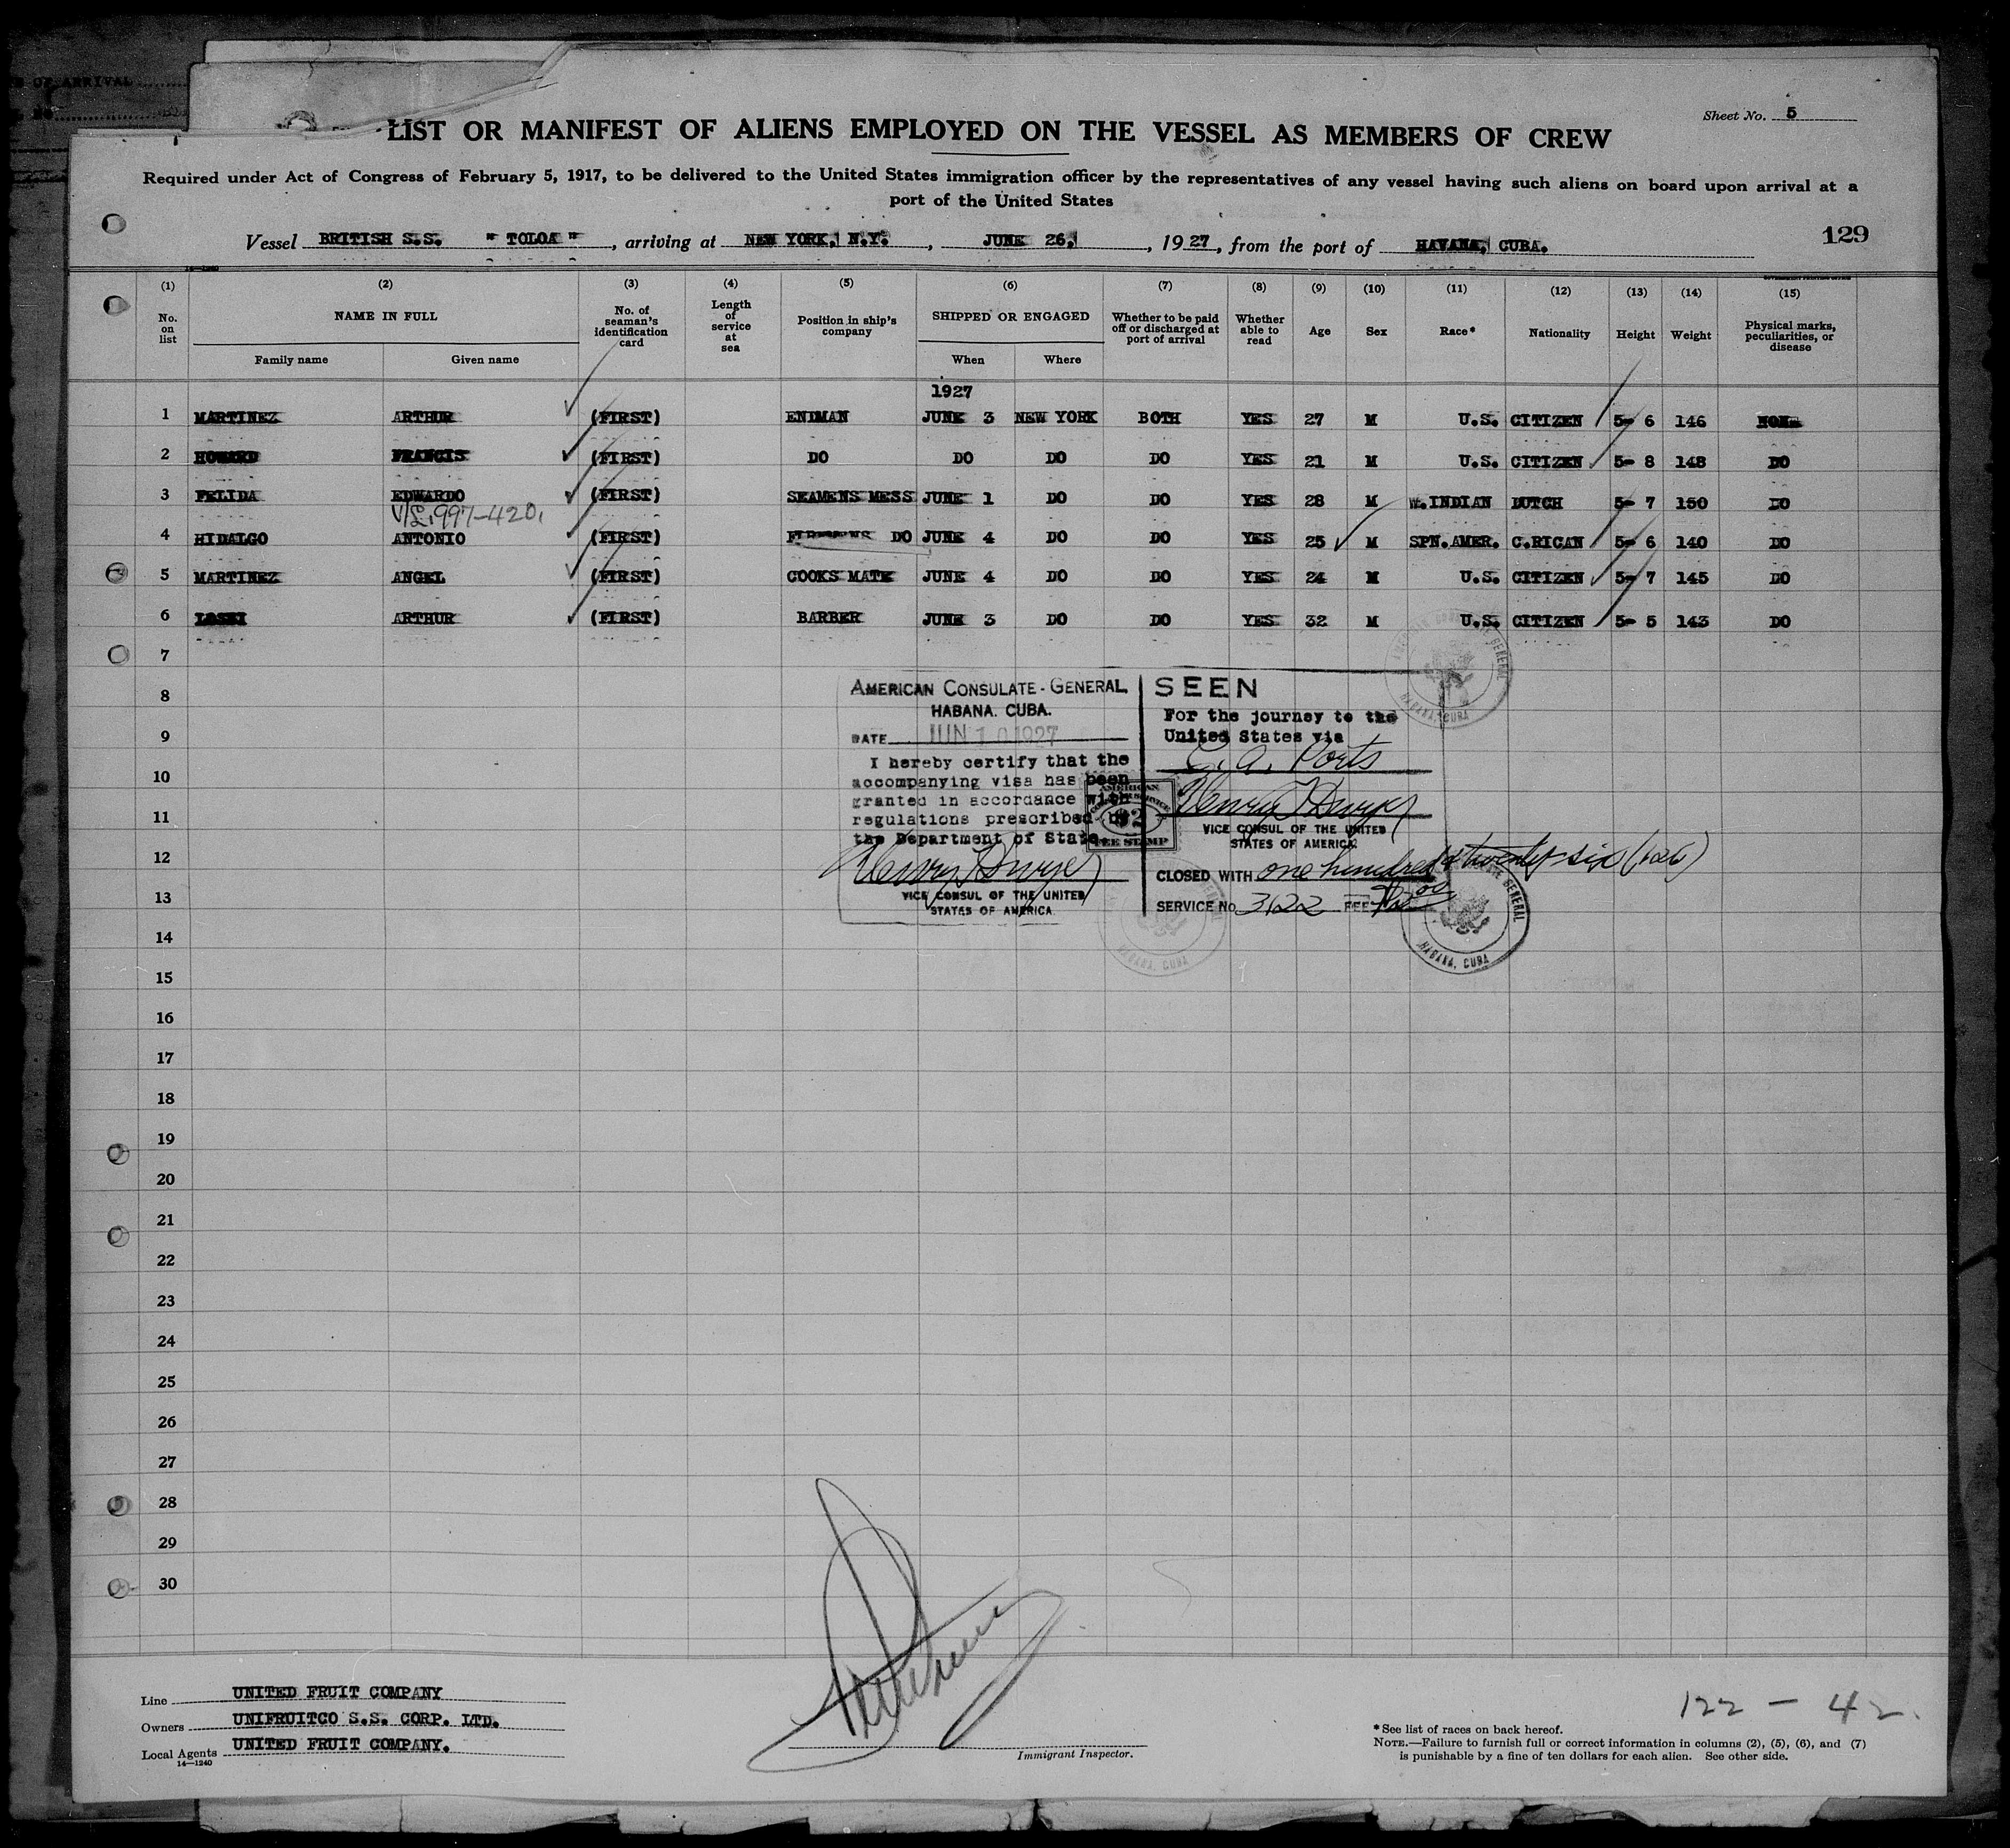 OF ARRIVAL
Sheet No. 5
LIST OR MANIFEST OF ALIENS EMPLOYED ON THE VESSEL AS MEMBERS OF CREW
Required under Act of Congress of February 5, 1917, to be delivered to the United States immigration officer by the representatives of any vessel having such aliens on board upon arrival at a
port of the United States
129
Vessel BRITISH S.S. "TOLOA", arriving at NEW YORK, N.Y., JUNE 26, 1927, from the port of HAVANA, CUBA.
14—1240
(1) (2) (3) (4) (5) (6) (7) (8) (9) (10) (11) (12) (13) (14) (15)
No. on list NAME IN FULL No. of seaman's identification card Length of service at sea Position in ship's company SHIPPED OR ENGAGED Whether to be paid off or discharged at port of arrival Whether able to read Age Sex Race* Nationality Height Weight Physical marks, peculiarities, or disease
Family name Given name When Where
1927
1 MARTINEZ ARTHUR (FIRST) ENDMAN JUNE 3 NEW YORK BOTH YES 27 M U.S. CITIZEN 5- 6 146 NON.
2 HOWARD FRANCIS (FIRST) DO DO DO DO YES 21 M U.S. CITIZEN 5- 8 148 DO
3 FELIDA EDWARDO (FIRST) SEAMENS MESS JUNE 1 DO DO YES 28 M W.INDIAN DUTCH 5- 7 150 DO
997-420
4 HIDALGO ANTONIO (FIRST) DO JUNE 4 DO DO YES 25 M SPN.AMER. C.RICAN 5- 6 140 DO
5 MARTINEZ ANGEL (FIRST) COOKS MATE JUNE 4 DO DO YES 24 M U.S. CITIZEN 5- 7 145 DO
6 ARTHUR (FIRST) BARBER JUNE 3 DO DO YES 32 M U.S. CITIZEN 5- 5 143 DO
7
8
9
10
11
12
13
14
15
16
17
18
19
20
21
22
23
24
25
26
27
28
29
30
AMERICAN CONSULATE-GENERAL
HABANA. CUBA.
DATE JUN 1927
I hereby certify that the
accompanying visa has been
granted in accordance with
regulations prescribed by
the Department of State.
Henry T Dwyer
VICE CONSUL OF THE UNITED
STATES OF AMERICA
SEEN
For the journey to the
United States via
C. A. Ports
Henry T Dwyer
VICE CONSUL OF THE UNITED
STATES OF AMERICA
CLOSED WITH one hundred & twenty-six (126)
SERVICE No 3122 FEE $2.00
AMERICAN
$2
FEE STAMP
HABANA, CUBA
HABANA, CUBA
GENERAL
HABANA, CUBA
Line UNITED FRUIT COMPANY
Owners UNIFRUITCO S.S. CORP. LTD.
Local Agents UNITED FRUIT COMPANY.
14—1240
Immigrant Inspector.
122 - 42
*See list of races on back hereof.
NOTE.—Failure to furnish full or correct information in columns (2), (5), (6), and (7)
is punishable by a fine of ten dollars for each alien. See other side.